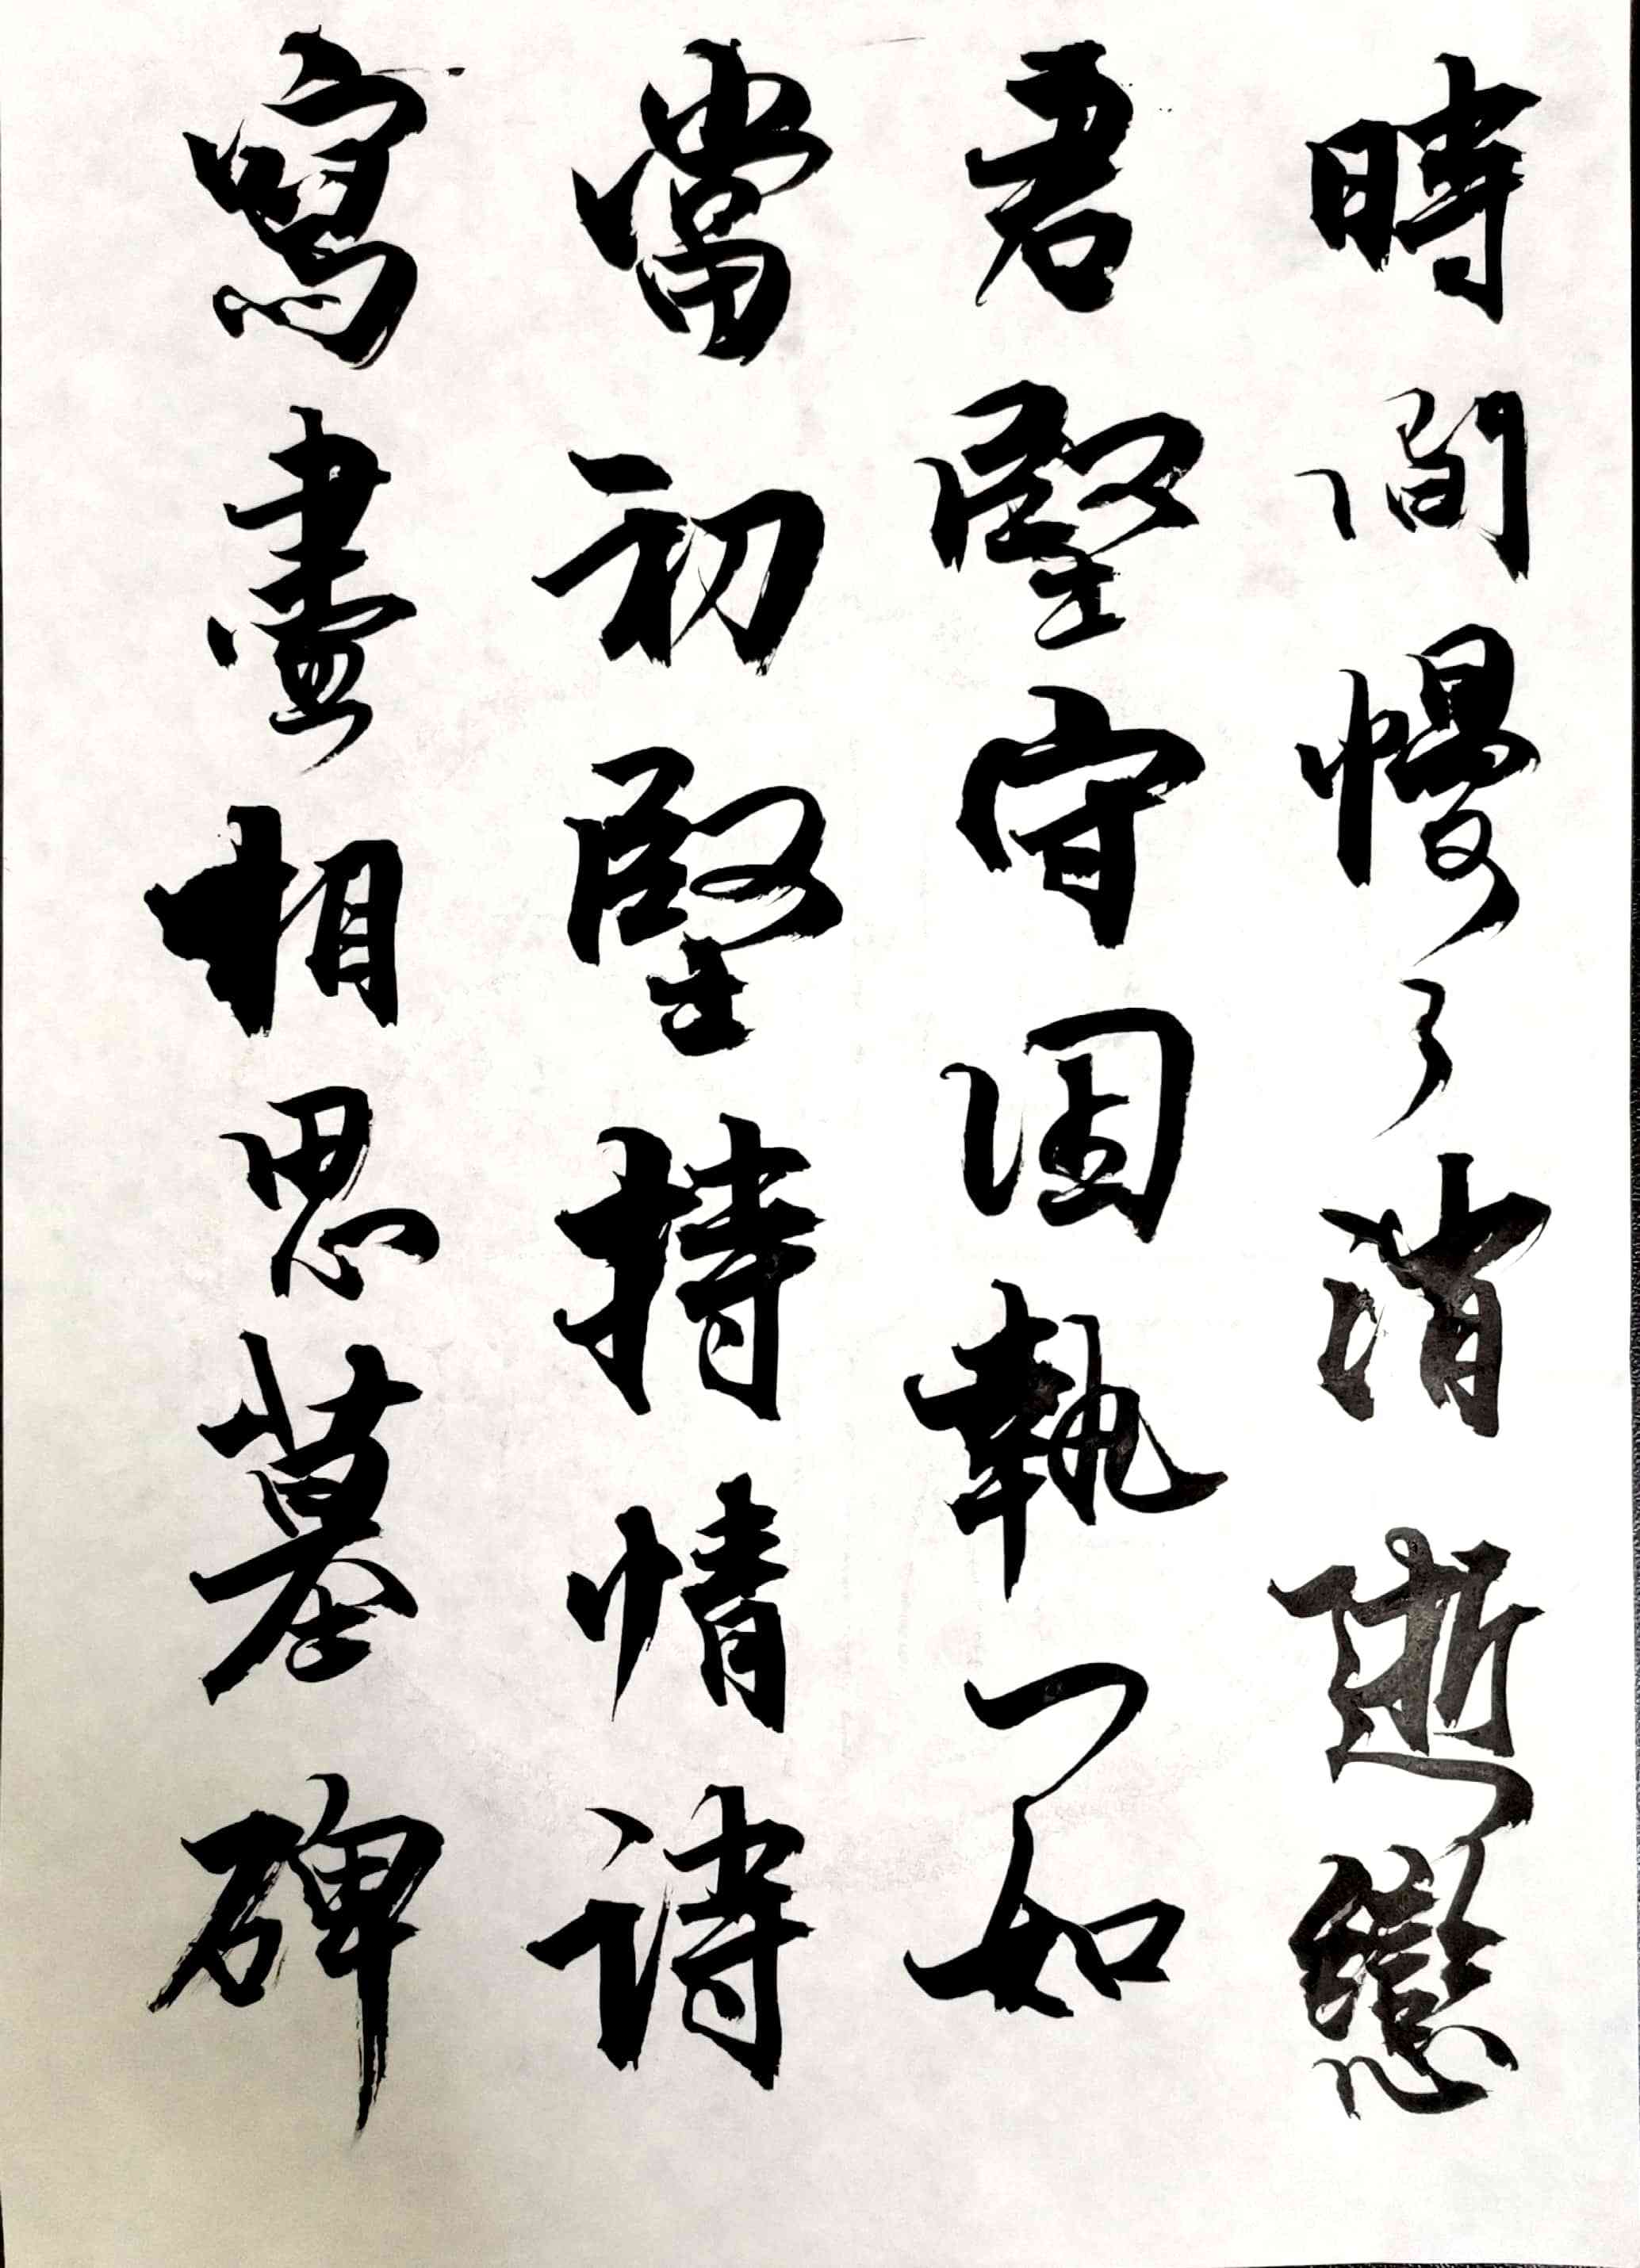 時間慢了消逝戀
君堅守固執一如
當初堅持情詩
寫盡相思墓碑